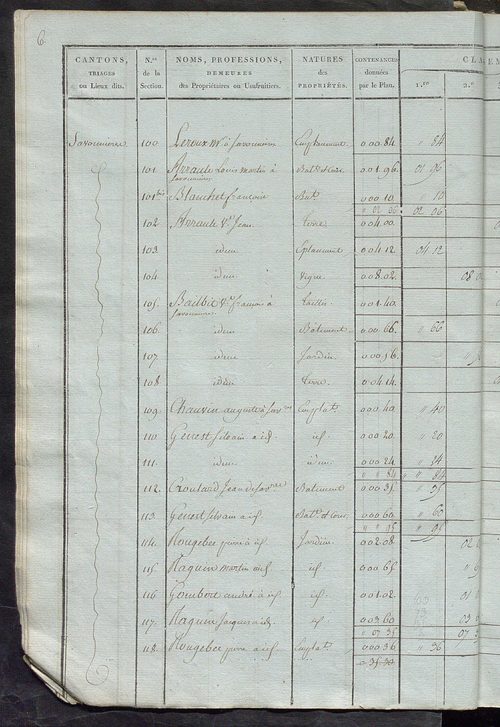 6
CANTONS, TRIAGES ou Lieux dits. N.os de la Section. NOMS, PROFESSIONS, DEMEURES des Propriétaires ou Usufruitiers. NATURES des PROPRIÉTÉS. CONTENANCES données par le Plan. CLASEM
1.re 2.e
Savonnieres 100 Leroux à Savonnieres Emplacement 0.00.84 " 84
101 Arrault Louis martin à 0.01.96 01 96
Savonnieres
101 bis Blanchet francoise Bat. 0.00.10 " 10
" 02 06 02 06
102 Arrault V.e Jean terre 0.04.00
103 idem Eplacement 0.04.12 04 12
104 idem vigne 0.08.02 08 0
105 V.e francois à taillis 0.01.40
Savonnieres
106 idem Batiment 0.00.66 " 66
107 idem Jardin 0.00.96
108 idem terre 0.04.14
109 Chauvin auguste à Emplat 0.00.40 " 40
110 Genest silvain à id. id. 0.00.20 " 20
111 idem idem 0.00.24 " 24
" " 84 " 84
112 Croulard Jean de Batiment 0.00.35 " 35
113 Genest silvain à id. Bat. et Cour 0.00.60 " 60
" " 95 " 95
114 Rougebec pierre à id. Jardin 0.02.08 02
115 martin id. id. 0.00.65
116 Gombert andré à id. id. 0.01.02 01
117 Jacques à id. id. 0.03.60 03
" 07 35 07
118 Rougebec pierre à id. Emplat 0.00.36 " 36